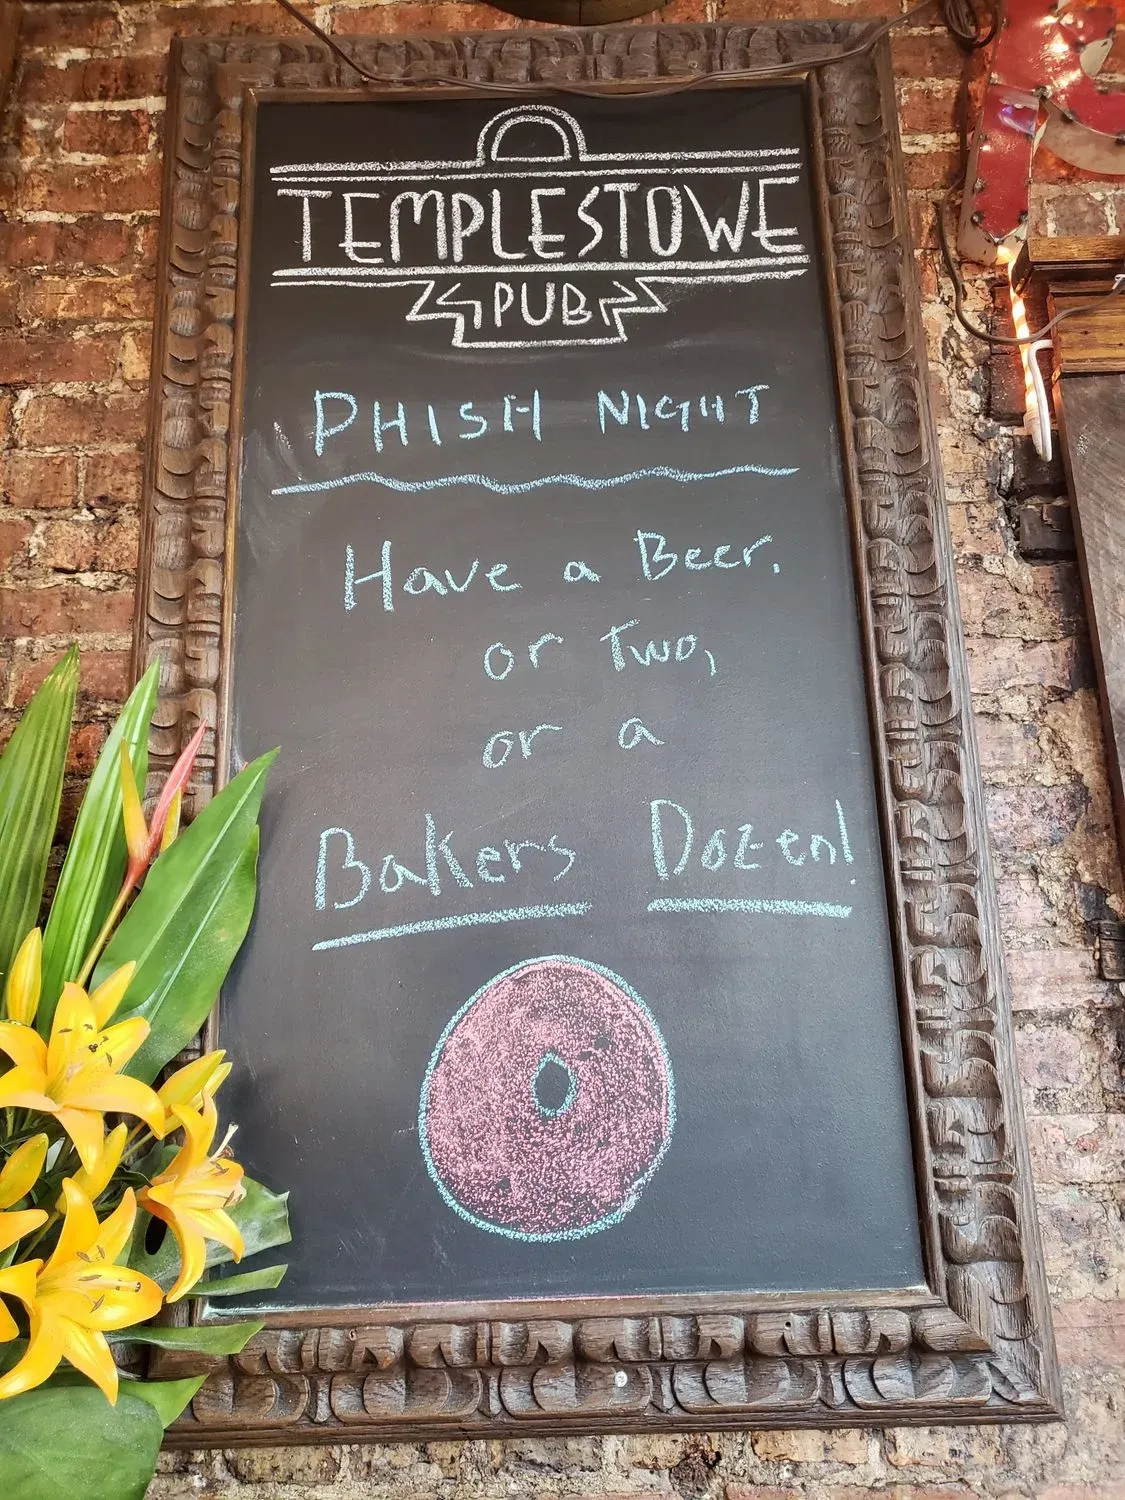 TEMPLESTOWE
PUB
PHISH NIGHT
Have a Beer.
or Two,
or a
Bakers Dozen!